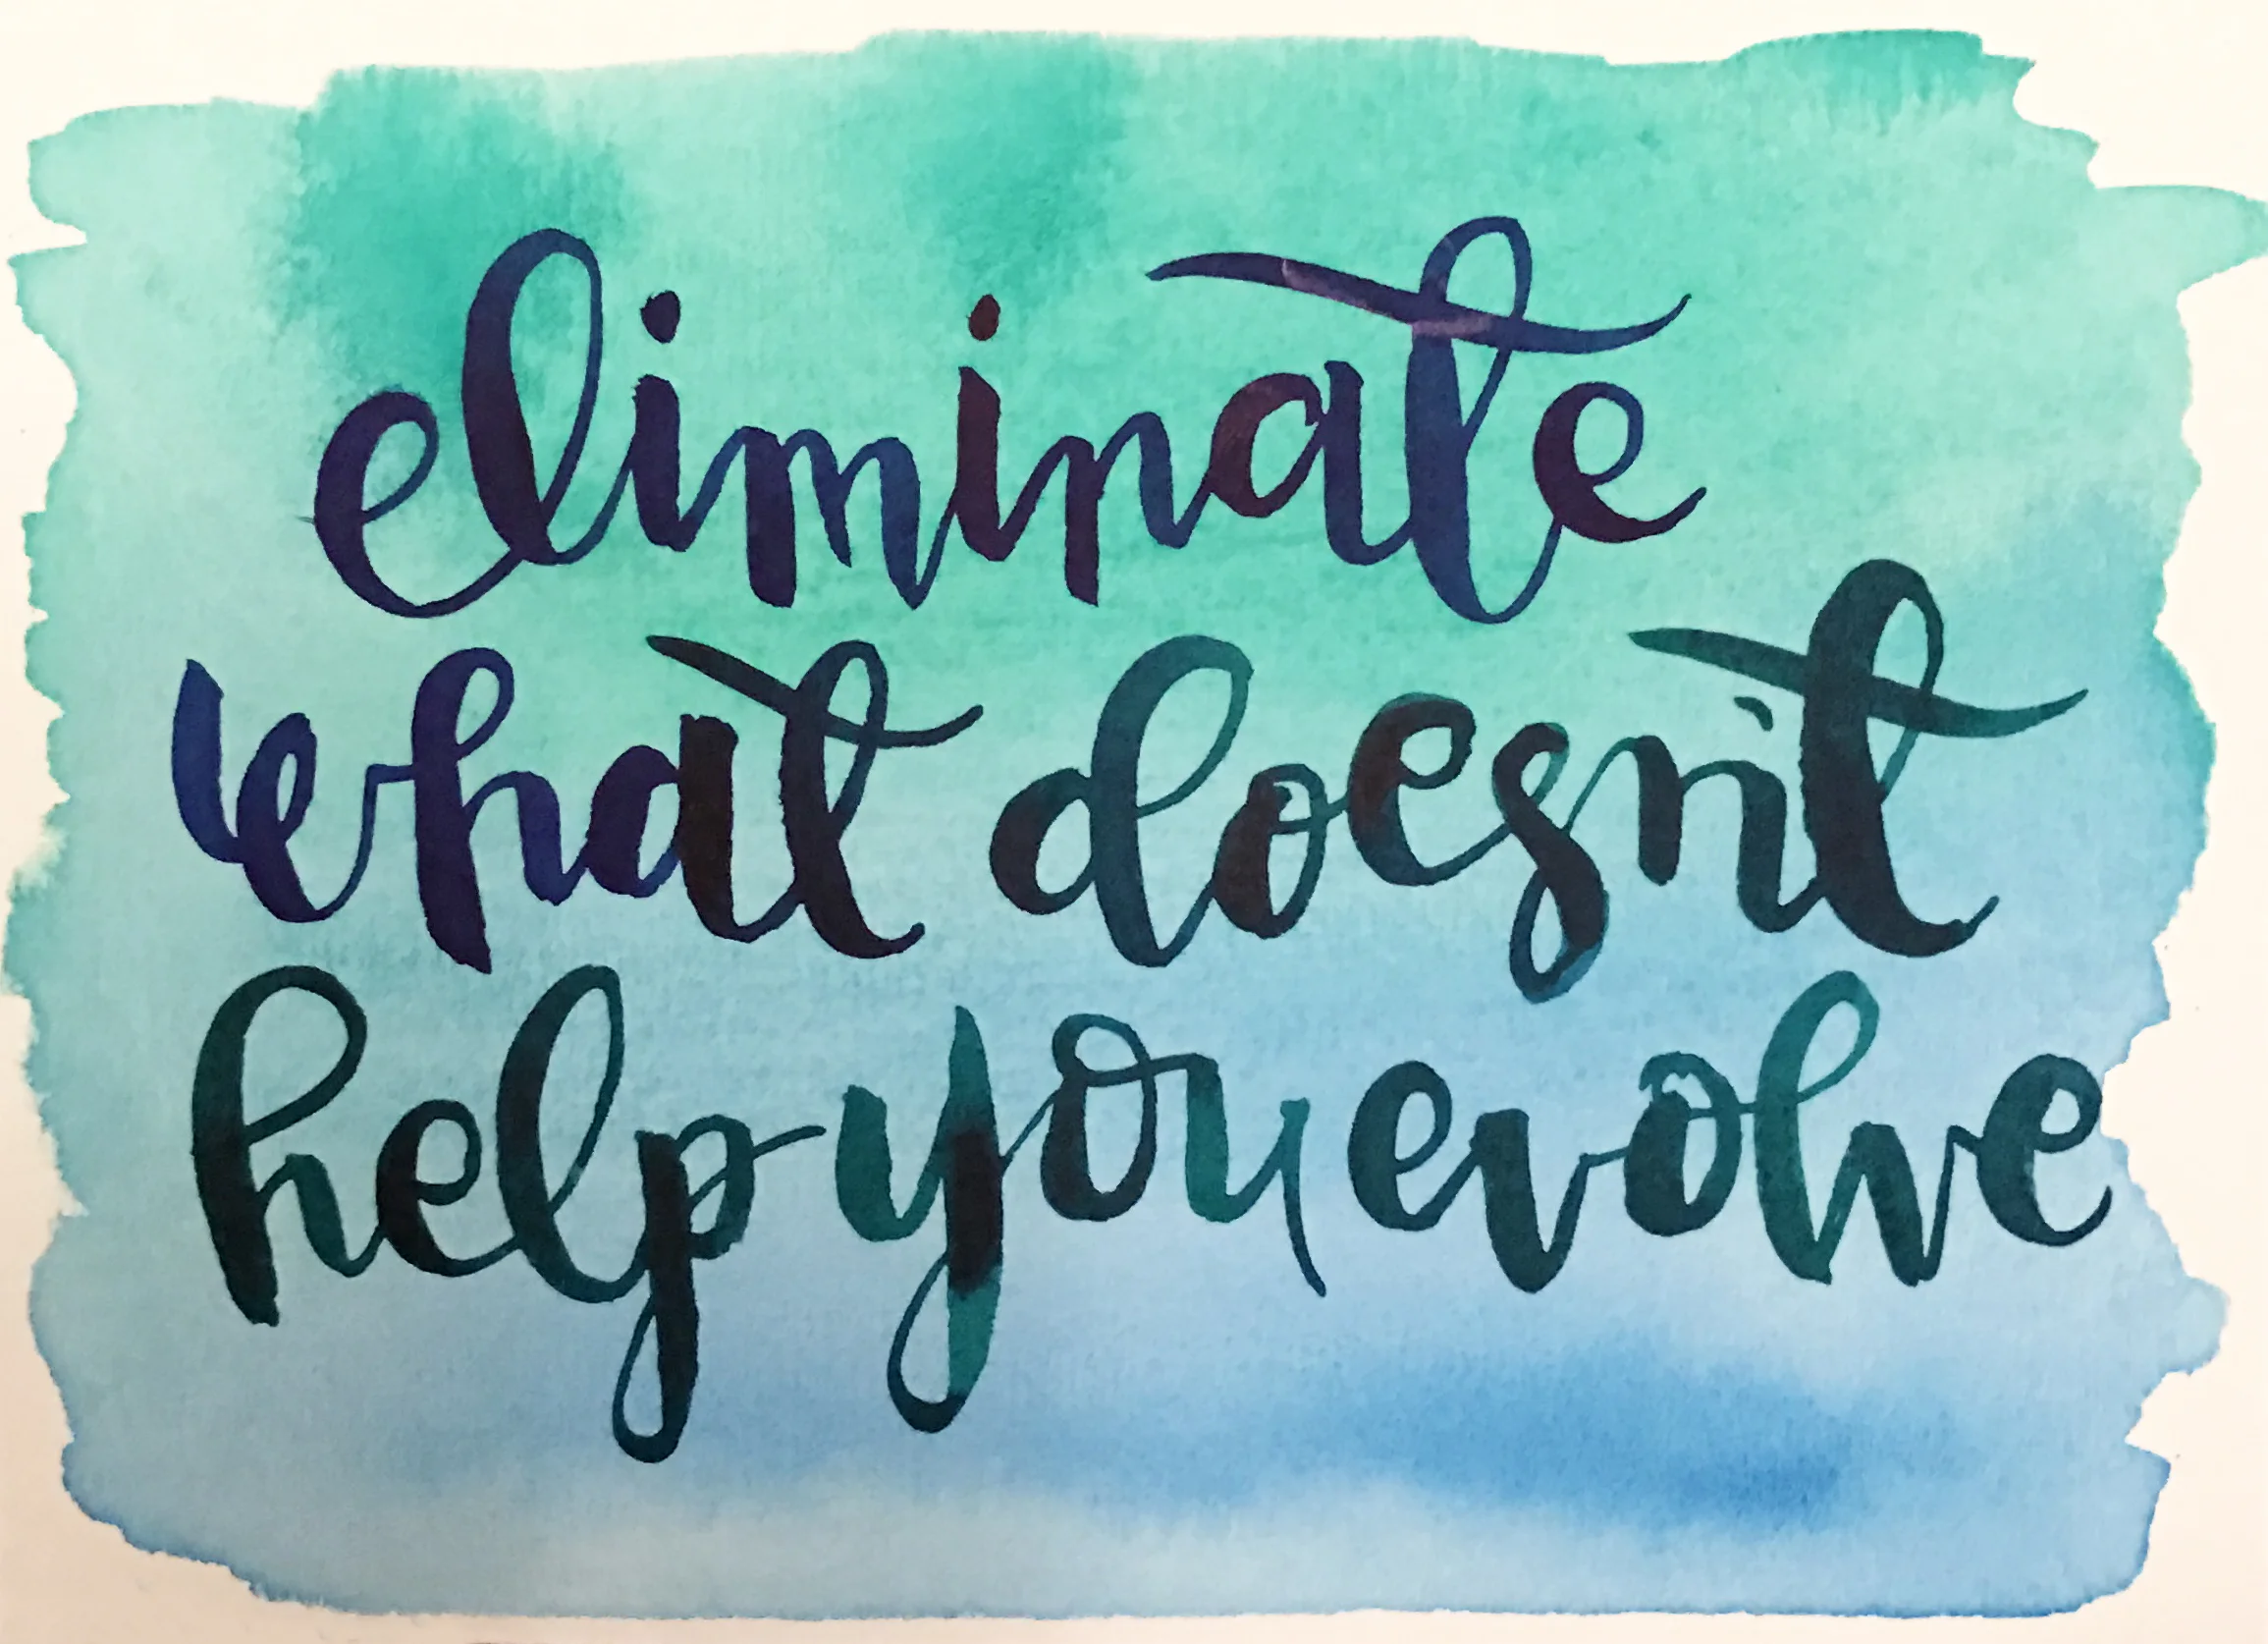 eliminate
what doesn't
help you evolve